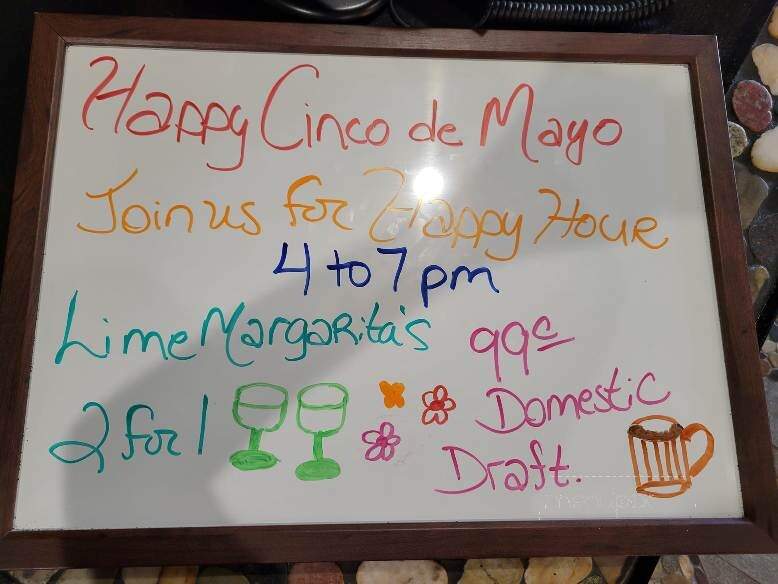 Happy Cinco de Mayo
Join us for Happy Hour
4 to 7 pm
Lime Margarita's
2 for 1
99¢
Domestic
Draft.